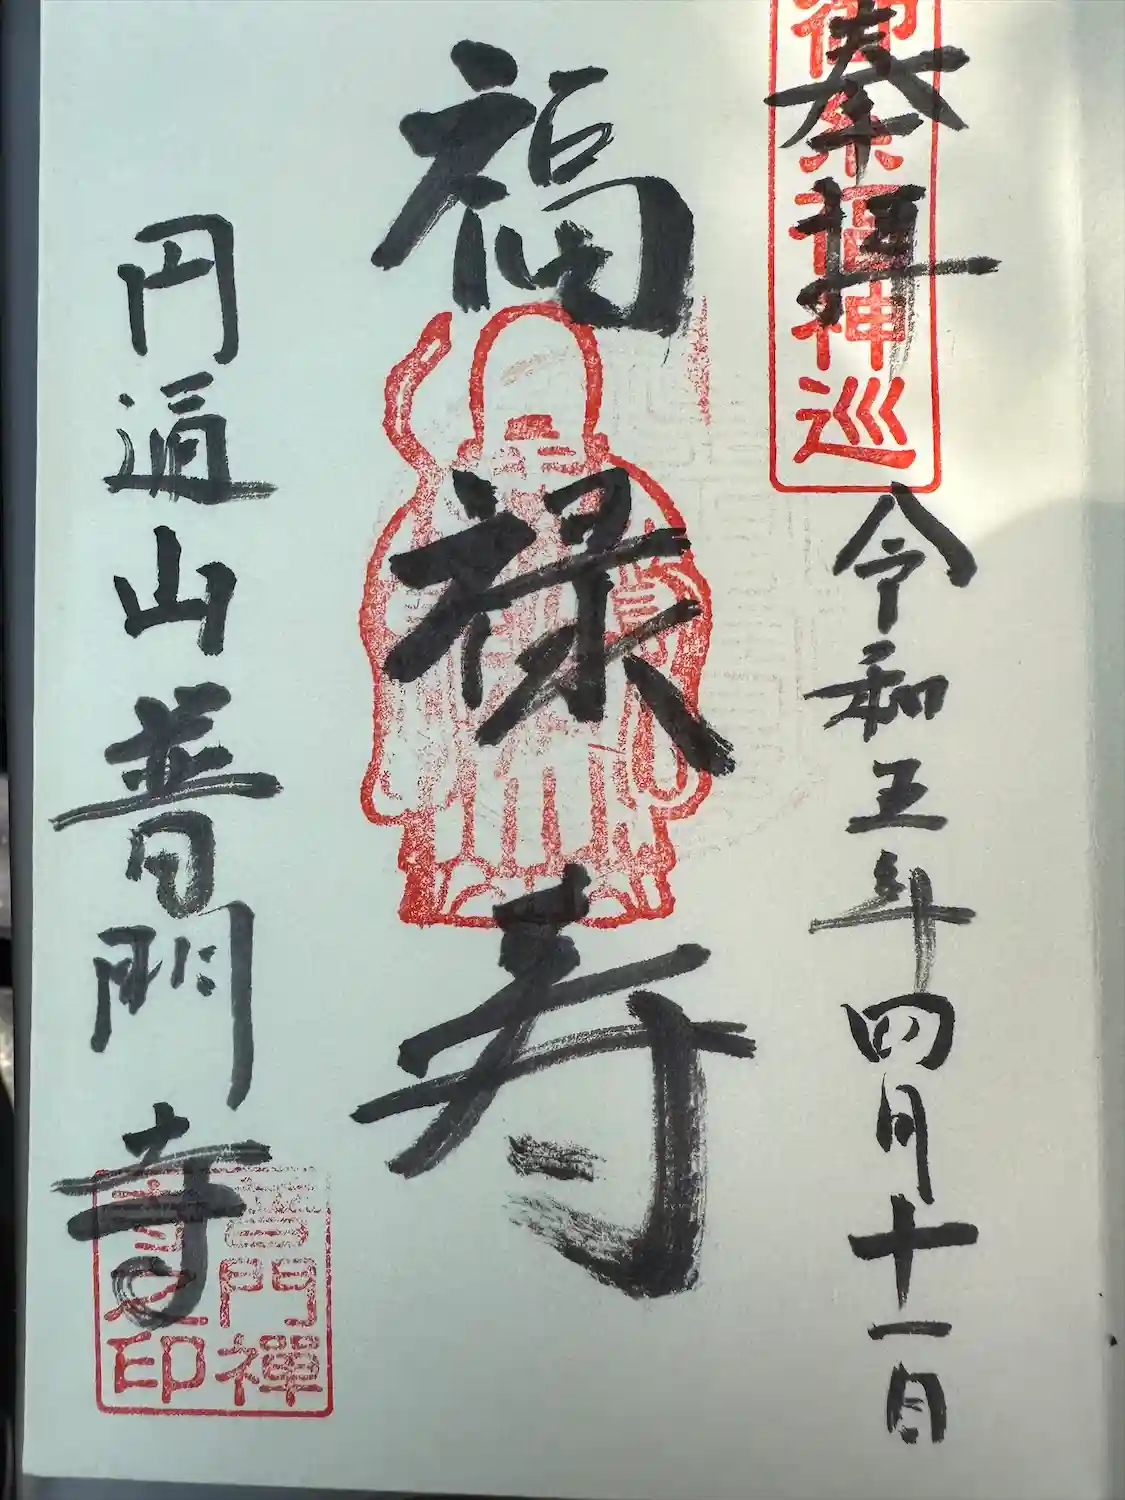 奉拝
福神巡
令和五年四月十一日
福禄寿
円通山普門寺
普門禪
寺之印